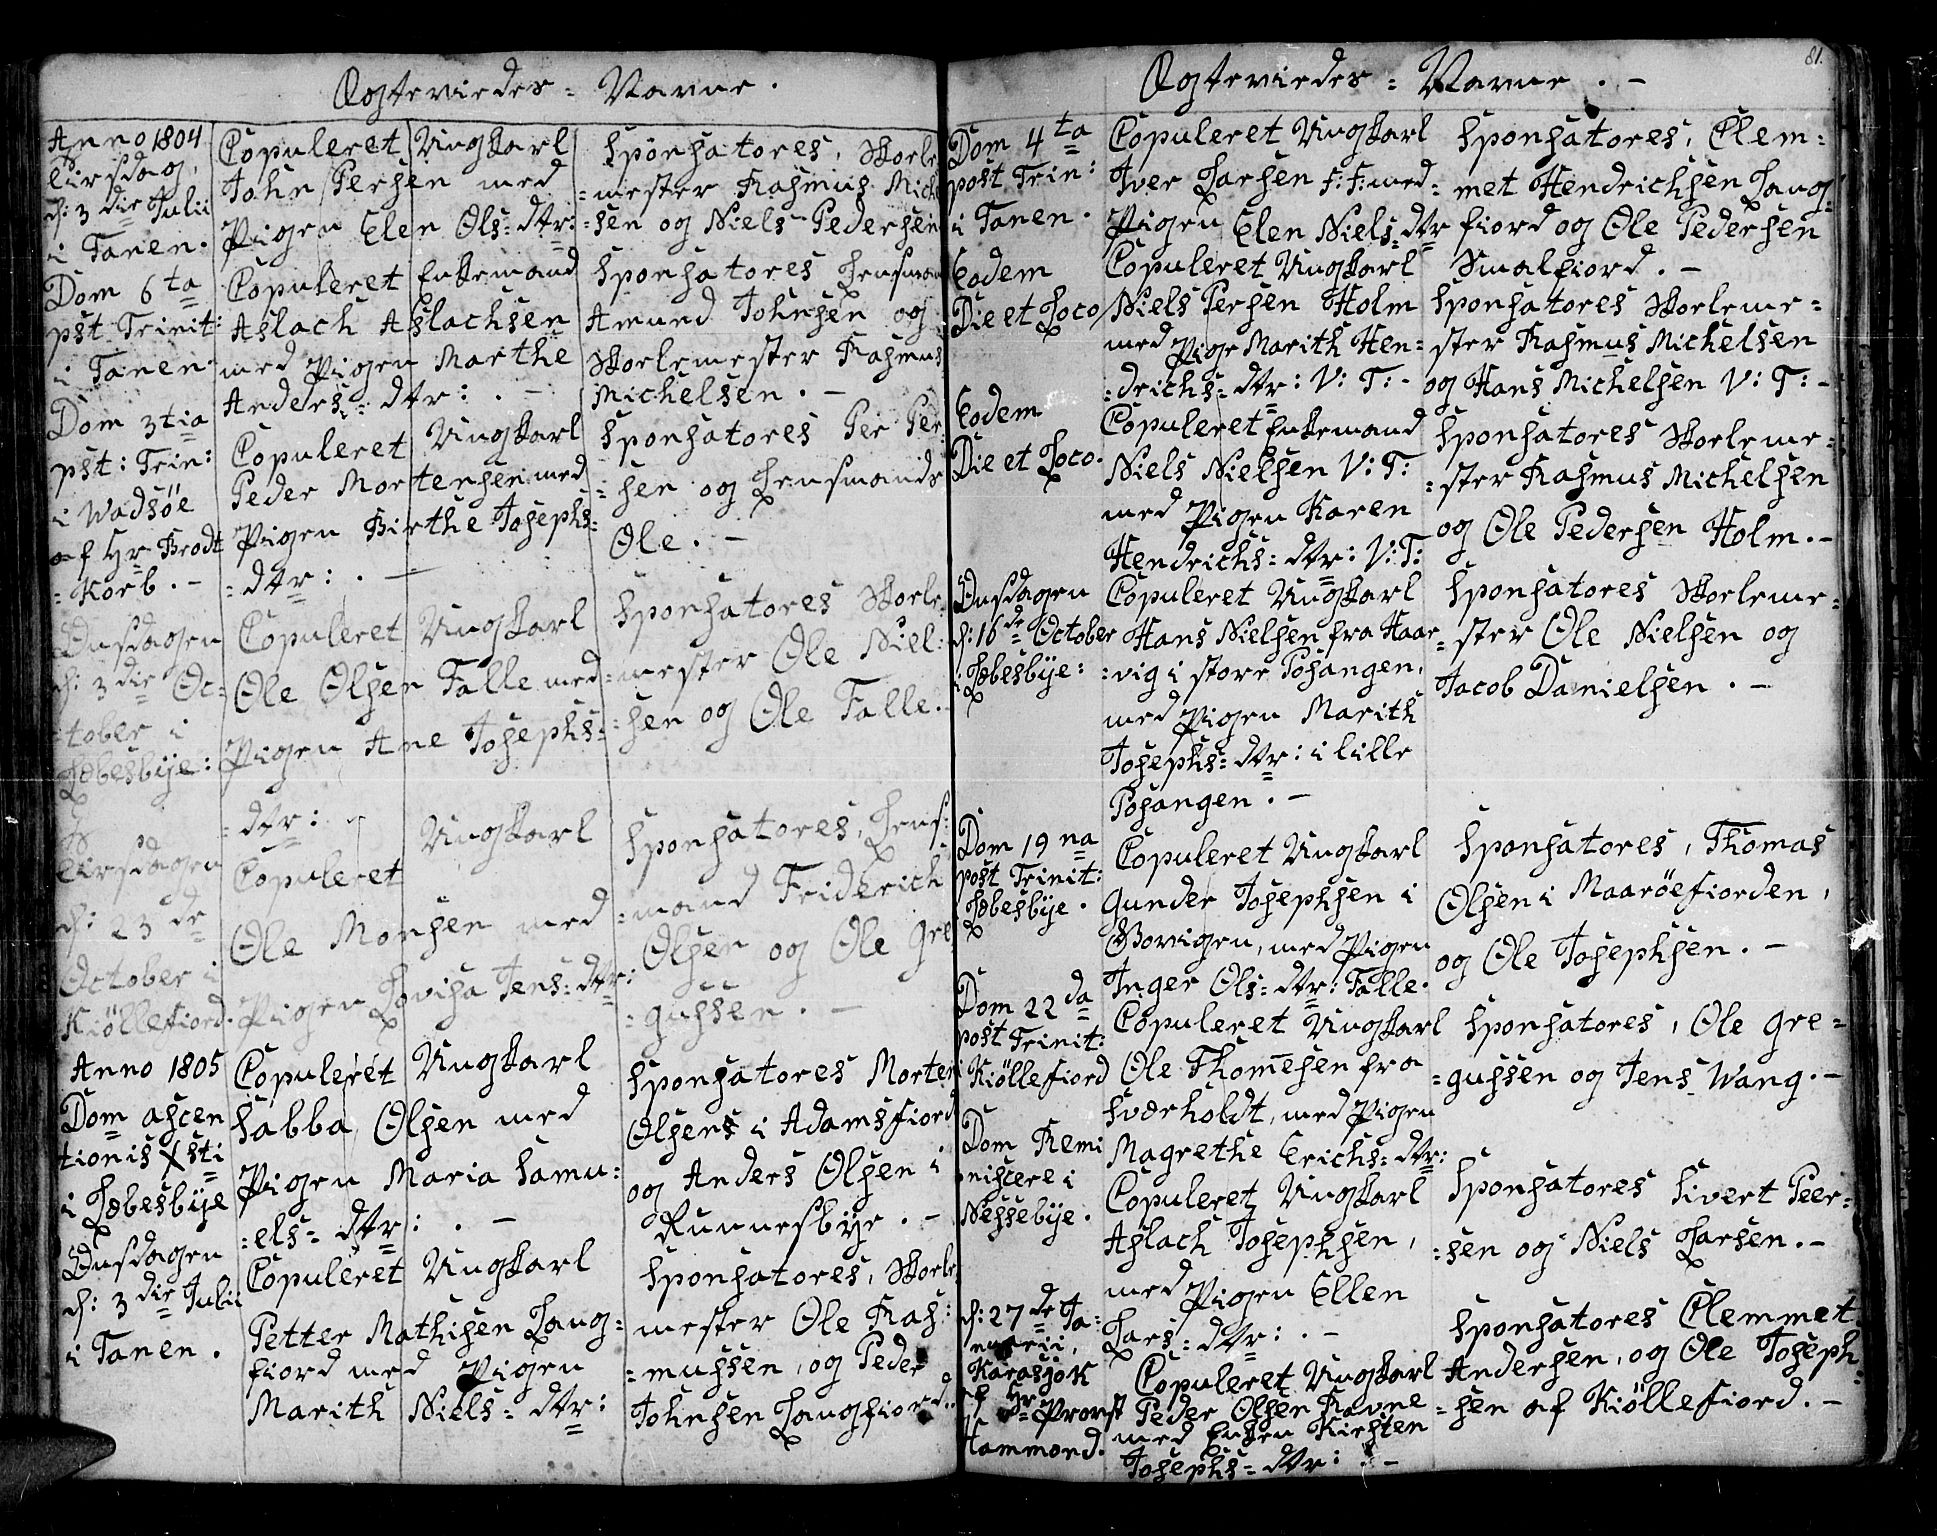 Ægteviedes = Navne.
Anno 1804
Tirsdag,
d: 3die Julii
i Tanen.
Copuleret Ungkarl
John Persen med
Pigen Elen Ols= dtr:
Sponsatores, Skole
=mester Rasmus Mich
=sen og Niels Pedersen
Dom 6ta
pst Trinit:
i Tanen.
Copuleret Enkemand
Aslach Aslachsen
med Pigen Marthe
Anders= dtr: . -
Sponsatores Lensman
Amund Johnsen og
Skolemester Rasmus
Michelsen. -
Dom 3tia
pst: Trin:
i Wadsöe
af Hr Brodt
=Korb. -
Copuleret Ungkarl
Peder Mortensen med
Pigen Birthe Josephs=
=dtr: . -
Sponsatores Per Per
=sen og Lensmands
Ole. -
Onsdagen
d: 3die Oc=
=tober i
Læbesbÿe:
Copuleret Ungkarl
Ole Olsen Falle med
Pigen Ane Josephs=
=dtr:
Sponsatores Skole
=mester Ole Niel=
=sen og Ole Falle.
Tirsdagen
d: 23de
October i
Kiöllefiord.
Copuleret Ungkarl
Ole Monsen med
Pigen Lovisa Jens= dtr:
Sponsatores, Lens=
=mand Friderich
Olsen og Ole Gre
=gussen. -
Anno 1805
Dom ascen
tionis Xsti
i Læbesbÿe
Copuleret Ungkarl
Sabba Olsen med
Pigen Maria Samu=
=els= dtr: . -
Sponsatores Morten
Olsens i Adamsfiord
og Anders Olsen i
Kunnesbÿe. -
Onsdagen
d: 3die Julii
i Tanen.
Copuleret Ungkarl
Petter Mathisen Lang=
fiord med Pigen
Marith Niels= dtr:
Sponsatores, Skole
mester Ole Ras=
=mussen, og Peder
Johnsen Langfiord.
81.
Ægteviedes = Navne. -
Dom 4ta
post Trin:
i Tanen.
Copuleret Ungkarl
Iver Larsen F: F: med
Pigen Elen Niels= dtr
Sponsatores, Clem=
=met Hendrichsen Lang
fiord og Ole Pedersen
Smalfiord. -
Eodem
Die et Loco
Copuleret Ungkarl
Niels Persen Holm
med Pige Marith Hen=
=drichs= dtr: V: T: -
Sponsatores Skoleme=
ster Rasmus Michelsen
og Hans Michelsen V: T: -
Eodem
Die et Loco.
Copuleret Enkemand
Niels Nielsen V: T:
med Pigen Karen
Hendrichs= dtr: V: T:
Sponsatores Skoleme=
=ster Rasmus Michelsen
og Ole Pedersen Holm. -
Onsdagen
d: 16de October
i Læbesbÿe:
Copuleret Ungkarl
Hans Nielsen fra Haar
=vig i store Posangen,
med Pigen Marith
Josephs= dtr: i lille
Posangen. -
Sponsatores Skoleme=
=ster Ole Nielsen og
Jacob Danielsen. -
Dom 19na
post Trinit:
Læbesbÿe.
Copuleret Ungkarl
Gunder Josephsen i
Govigen, med Pigen
Inger Ols= dtr: Falle.
Sponsatores, Thomas
Olsen i Maaröefiorden,
og Ole Josephsen. -
Dom 22da
post Trinit:
Kiöllefiord
Copuleret Ungkarl
Ole Thomesen fra
Sværholdt, med Pigen
Magrethe Erichs= dtr:
Sponsatores, Ole Gre=
=gussen og Jens Wang. -
Dom Remi
niscere i
Nessebÿe.
Copuleret Ungkarl
Aslach Josephsen,
med Pigen Ellen
Lars= dtr: . -
Sponsatores Sivert Peer=
=sen og Niels Larsen. -
d: 27de Ja=
nuarii,
Karasjok
af Hr Provst
Hammond.
Copuleret Ungkarl
Peder Olsen Ravne
med Enken Kirsten
Josephs= dtr: . -
Sponsatores Clemmet
Andersen, og Ole Joseph
=sen af Kiöllefiord. -